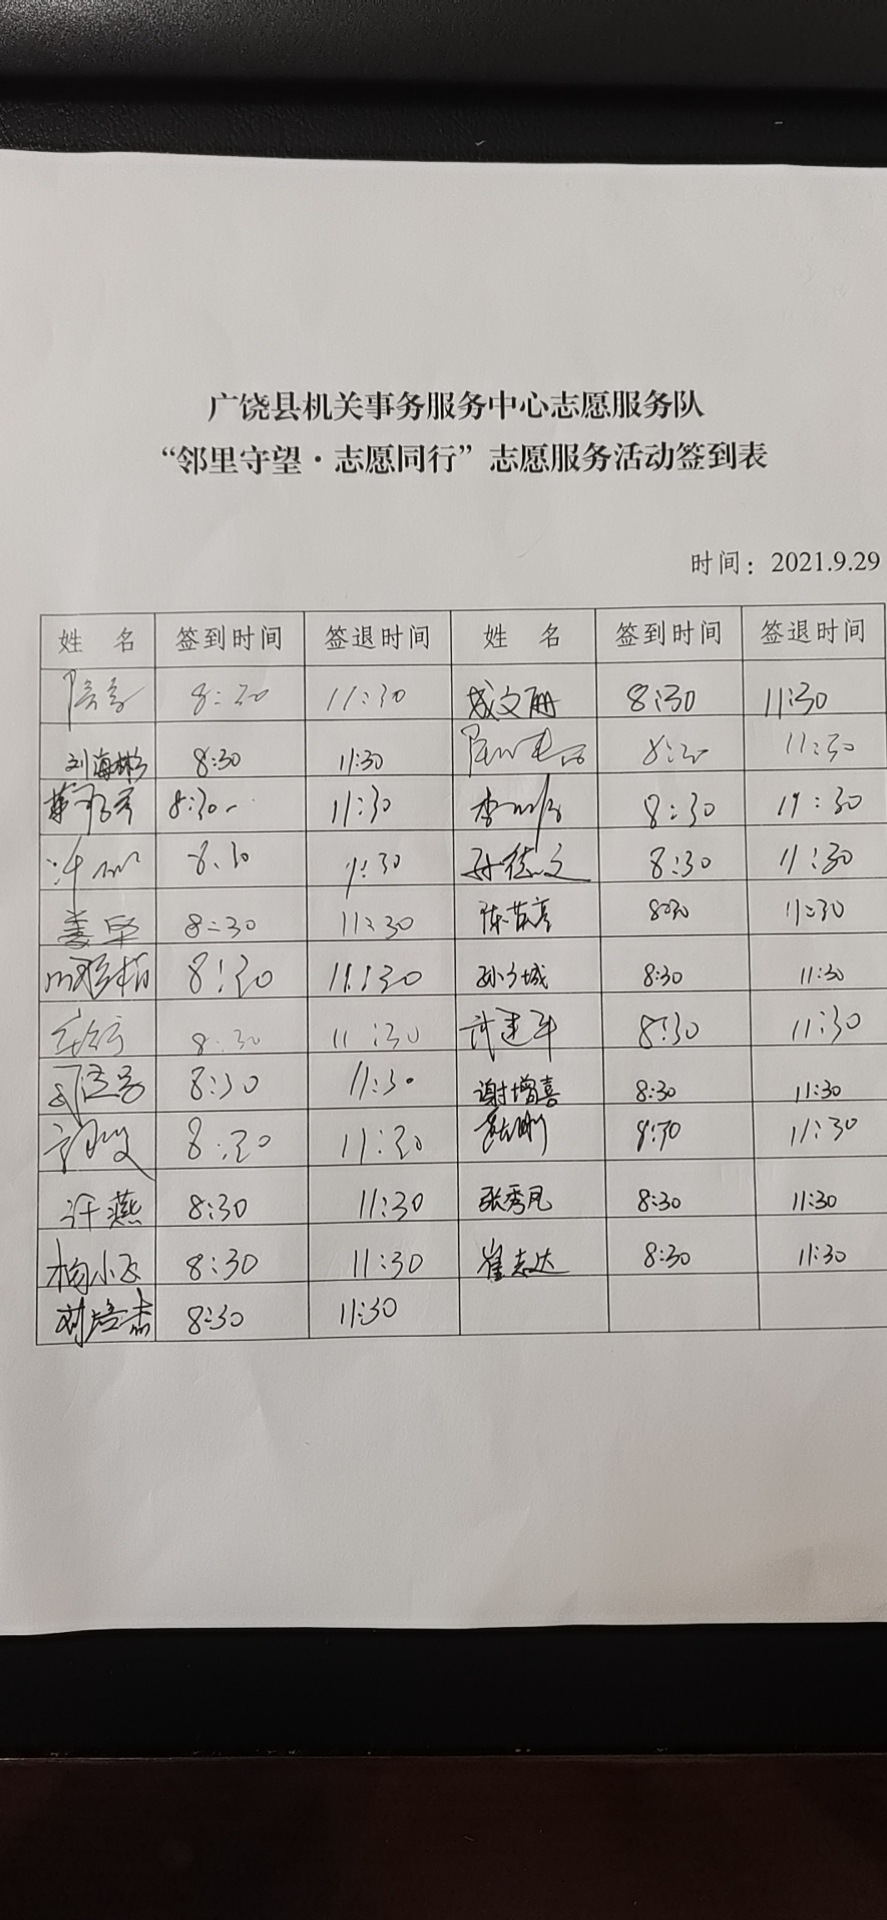 广饶县机关事务服务中心志愿服务队
“邻里守望·志愿同行”志愿服务活动签到表
时间：2021.9.29
姓 名 签到时间 签退时间 姓 名 签到时间 签退时间
8:30 11:30 成文册 8:30 11:30
刘海彬 8:30 11:30 8:30 11:30
8:30 11:30 8:30 11:30
8:30 11:30 孙德文 8:30 11:30
姜坚 8:30 11:30 8:30 11:30
8:30 11:30 8:30 11:30
8:30 11:30 许建军 8:30 11:30
8:30 11:30 谢增喜 8:30 11:30
8:30 11:30 8:30 11:30
许燕 8:30 11:30 张秀凡 8:30 11:30
8:30 11:30 崔志达 8:30 11:30
8:30 11:30